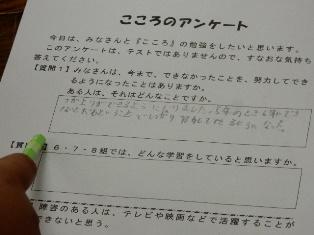 こころのアンケート
今日は、みなさんと『こころ』の勉強をしたいと思います。
このアンケートは、テストではありませんので、すなおな気持ち
答えてください。
【質問１】みなさんは、今まで、できなかったことを、努力してでき
るようになったことはありますか。
ある人は、それはどんなことですか。
【質 】６・７・８組では、どんな学習をしていると思いますか。
障害のある人は、テレビや映画などで活躍することが
できないと思う。